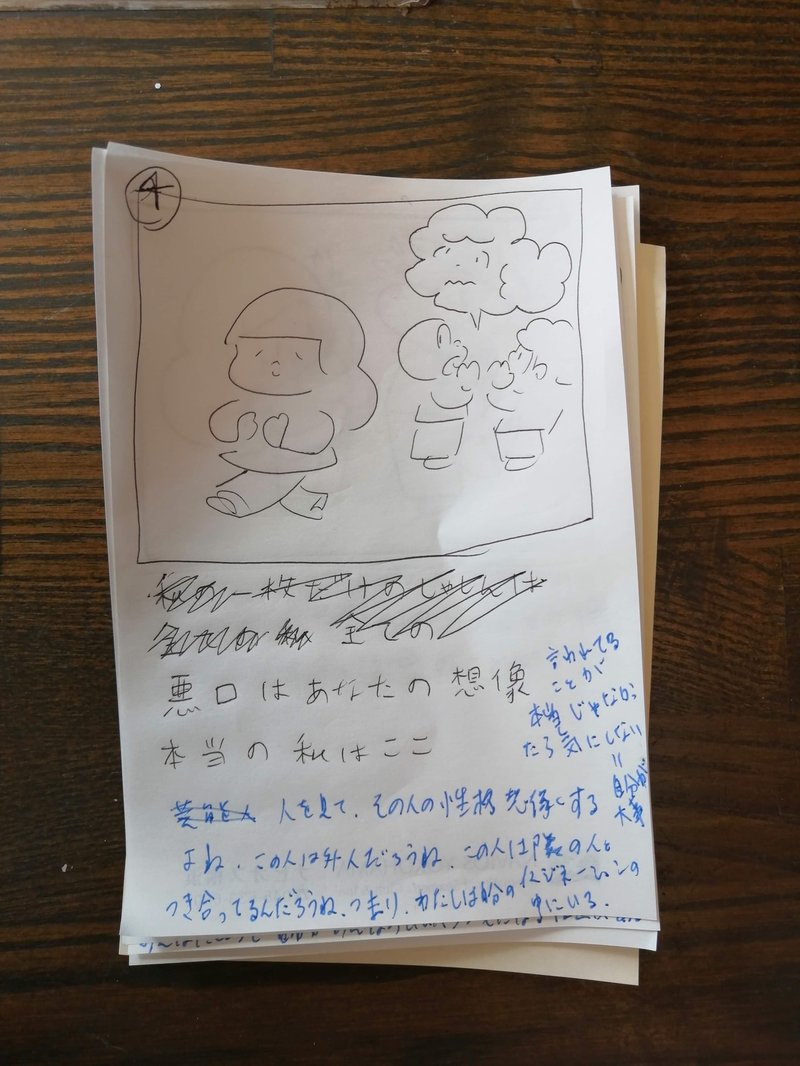 4
私の一枚だけのしゃしんは
私 全ての
悪口はあなたの想像
本当の私はここ
言われてる
ことが
本当じゃなかっ
たら気にしない
=
自分が
大事
芸能人 人を見て、その人の性格 想像する
よね。この人は外人だろうね、この人は隣の人と
つき合ってるんだろうね、つまり、わたしは
イマジネーションの
中にいる。